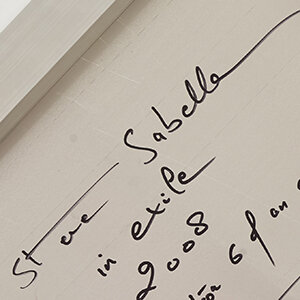 Steve Sabella
in exile
2008
6 of an